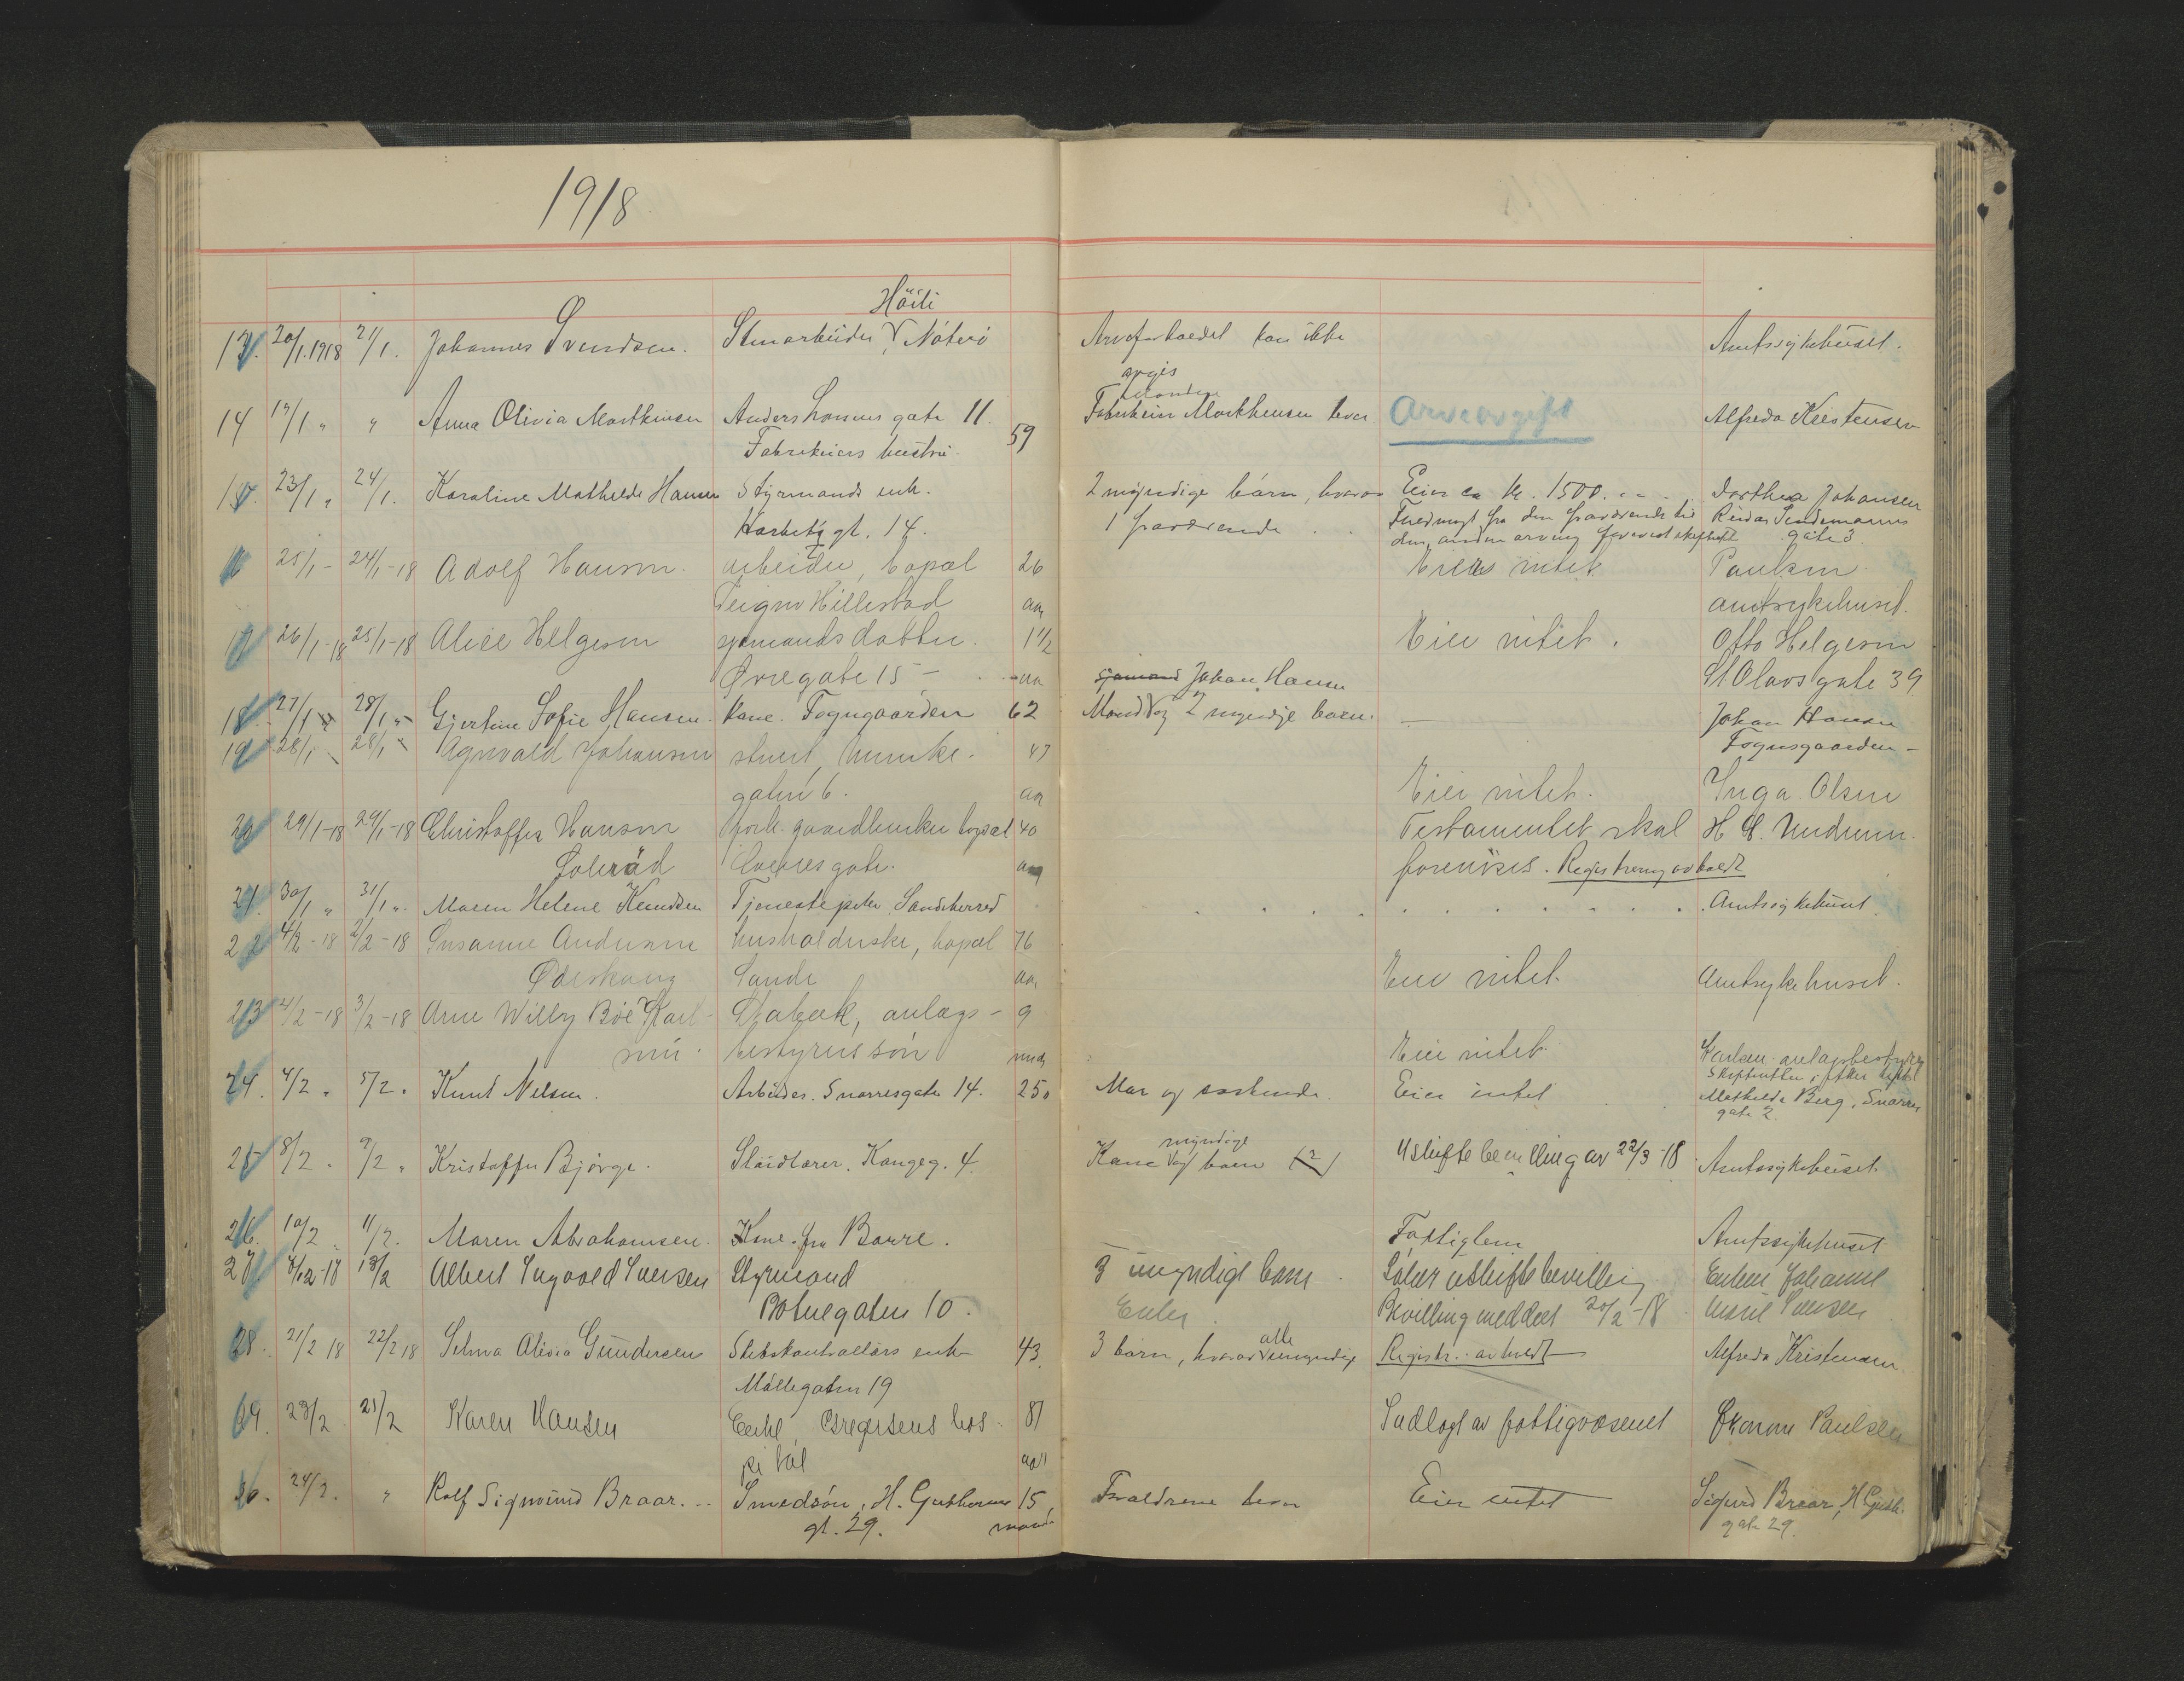 1918
Höili
13. 20/1.1918 21/1. Johannes Svendsen. Stenarbeider, Nøterø Arveforholdet kan ikke Amtssykehuset.
opgis
14 17/1 " " Anna Olivia Marthinsen Anders gate 11. 59 Marthinsen lever Arveavgift Alfreda Kristensen
Fabrikeiers hustru.
15. 23/1 " 24/1. Karoline Mathilde Hansen Styrmands enke. 2 myndige børn, hvorav Eier ca kr. 1500. Dorthea Johansen
gt. 14. 1 fraværende Fuldmagt fra den fraværende til Reidar
den anden arving gate 3.
16 25/1 - 24/1-18 Adolf Hansen. arbeider, bopæl 26 Eier intet Paulsen
Hillestad aar amtsykehuset.
17 26/1-18 25/1-18 Alice Helgesen sjømands datter. 1 1/2 Eier intet. Otto Helgesen
Øvregate 15 - aar sjømand Johan Hansen St Olavs gate 39
18. 27/1 " 28/1 " Gjertine Sofie Hansen. Kone. Fogngaarden 62 Mand og 2 myndige børn. — Johan Hansen
Fognsgaarden -
19 28/1 " 28/1 " Agnvald Johansen stuert, Munke- 47
gaten 6. aar Eier intet. Inga Olsen
20 29/1-18 29/1-18 Christoffer Hanson forh. gaardbruker bopæl 40 Testamentet skal H
Solerød gate. aar forevises. Registrering avholdt
21. 30/1 " 31/1 ". Maren Helene Knudsen Tjenestepike Sandeherred Amtssykehuset
22 4/2-18 2/2-18 Susanne Andersen husholderske, bopæl 76
Ødeskaug Sande aar Eier intet. Amtsykehuset.
23 2/2-18 3/2-18 Arne Willy Böe Karl- Stabæk, anlægs- 9
sen. bestyrers sön mnd. Eier intet. Karlsen anlægsbestyrer
24. 4/2 " 5/2 " Knud Nilsen. Arbeider. Snorresgate 14. 25 Mor og søskende. Eier intet Mathilde Berg, Snorres
gate 2
25 8/2 " 9/2 " Kristoffer Bjørge. Sløidlærer. Kongeg. 4. Kone og myndige børn (2) Uskiftebevilling av 22/3-18 Amtssykehuset.
26. 10/2 11/2. Maren Abrahamsen. Kone fra Borre. Fattiglem Amtssykehuset
27 18/2 Albert Ingvald Iversen Styrmand 3 umyndige barn Søker uskiftebevilling Enken Johanne
gaten 10. Enke. Bevilling meddelt 20/2-18 Marie Iversen
28. 21/2 18 22/2 18 Selma Olivia Gundersen Skibskontrollørs enke 43. 3 børn, hvorav alle umyndige Registr. avholdt Alfreda Kristensen.
Møllegaten 19
29. 23/2 25/2 Karen Hansen Enke, hos- 81 Indlagt av fattigvæsenet Økonom Paulsen
pital aar
30. 24/2. " Rolf Sigmund Braar. Smedsøn, H. Guthorms 15 Forældrene lever Eier intet Sigurd Braar, H Guth.
gt. 29. maand. gate 29.